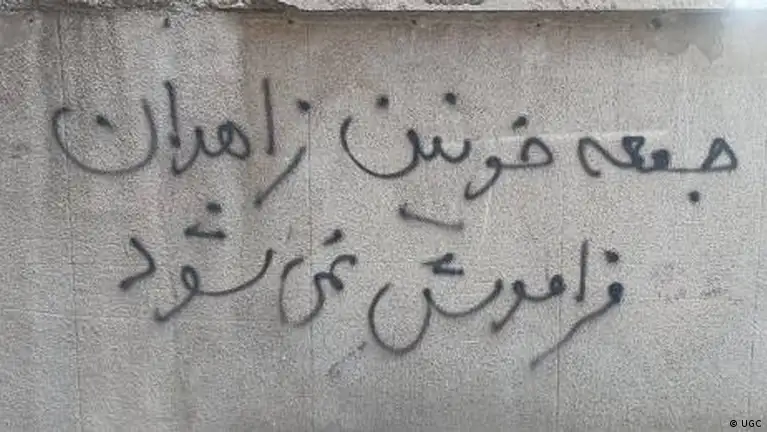 جمعه خونین زاهدان
فراموش نمی شود
© UGC